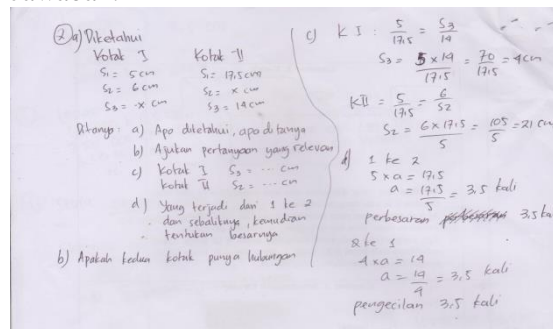 ② a) Diketahui
Kotak I Kotak II
S₁ = 5 cm S₁ = 17,5 cm
S₂ = 6 cm S₂ = x cm
S₃ = x cm S₃ = 14 cm
Ditanya : a) Apa diketahui, apa ditanya
b) Ajukan pertanyaan yang relevan
c) Kotak I S₃ = ... cm
Kotak II S₂ = ... cm
d) Yang terjadi dari 1 ke 2
dan sebaliknya, kemudian
tentukan besarnya
b) Apakah kedua kotak punya hubungan
c) K I : 5/17,5 = S₃/14
S₃ = 5 x 14/17,5 = 70/17,5 = 4 cm
K II = 5/17,5 = 6/S₂
S₂ = 6 x 17,5/5 = 105/5 = 21 cm
d) 1 ke 2
5 x a = 17,5
a = 17,5/5 = 3,5 kali
perbesaran 3,5 ka
2 ke 1
4 x a = 14
a = 14/4 = 3,5 kali
pengecilan 3,5 kali